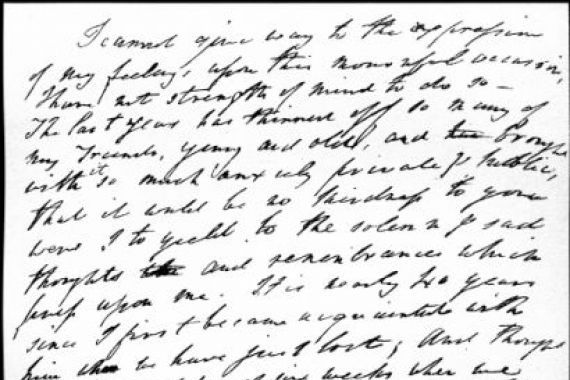 I cannot give way to the expression
of my feelings upon this mournful occasion,
I have not strength of mind to do so —
The last year has thinned off so many of
my Friends, young and old, and has brought
with it so much anxiety private & Public,
that it would be no kindness to you
were I to yield to the solemn & sad
thoughts and remembrances which
press upon me. It is nearly 40 years
since I first became acquainted with
him we have just lost; And though
weeks when we